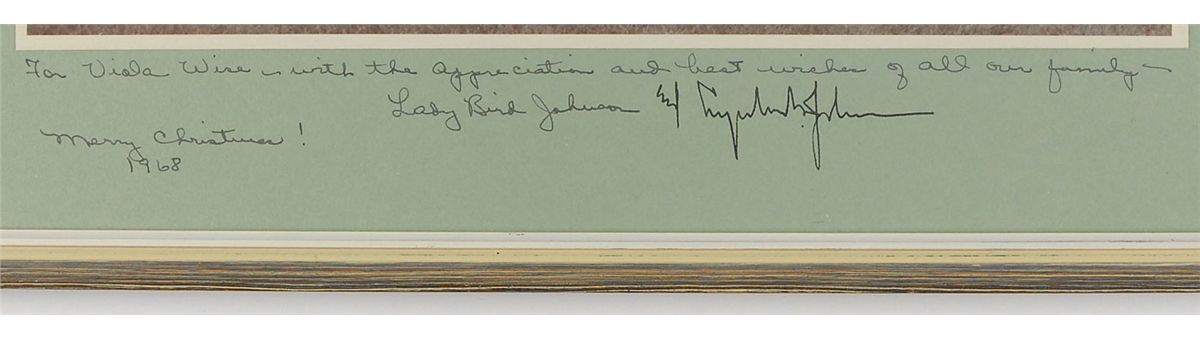 For Viola Wise – with the appreciation and best wishes of all our family –
Lady Bird Johnson and Lyndon B. Johnson
Merry Christmas!
1968